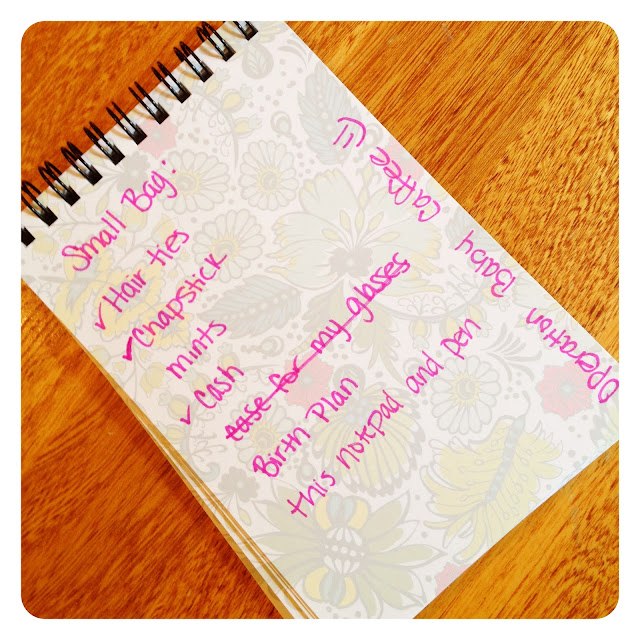 Small Bag:
✓ Hair ties
✓ Chapstick
mints
✓ Cash
case for my glasses
Birth Plan
this notpad and pen
Operation Baby Caffee =)